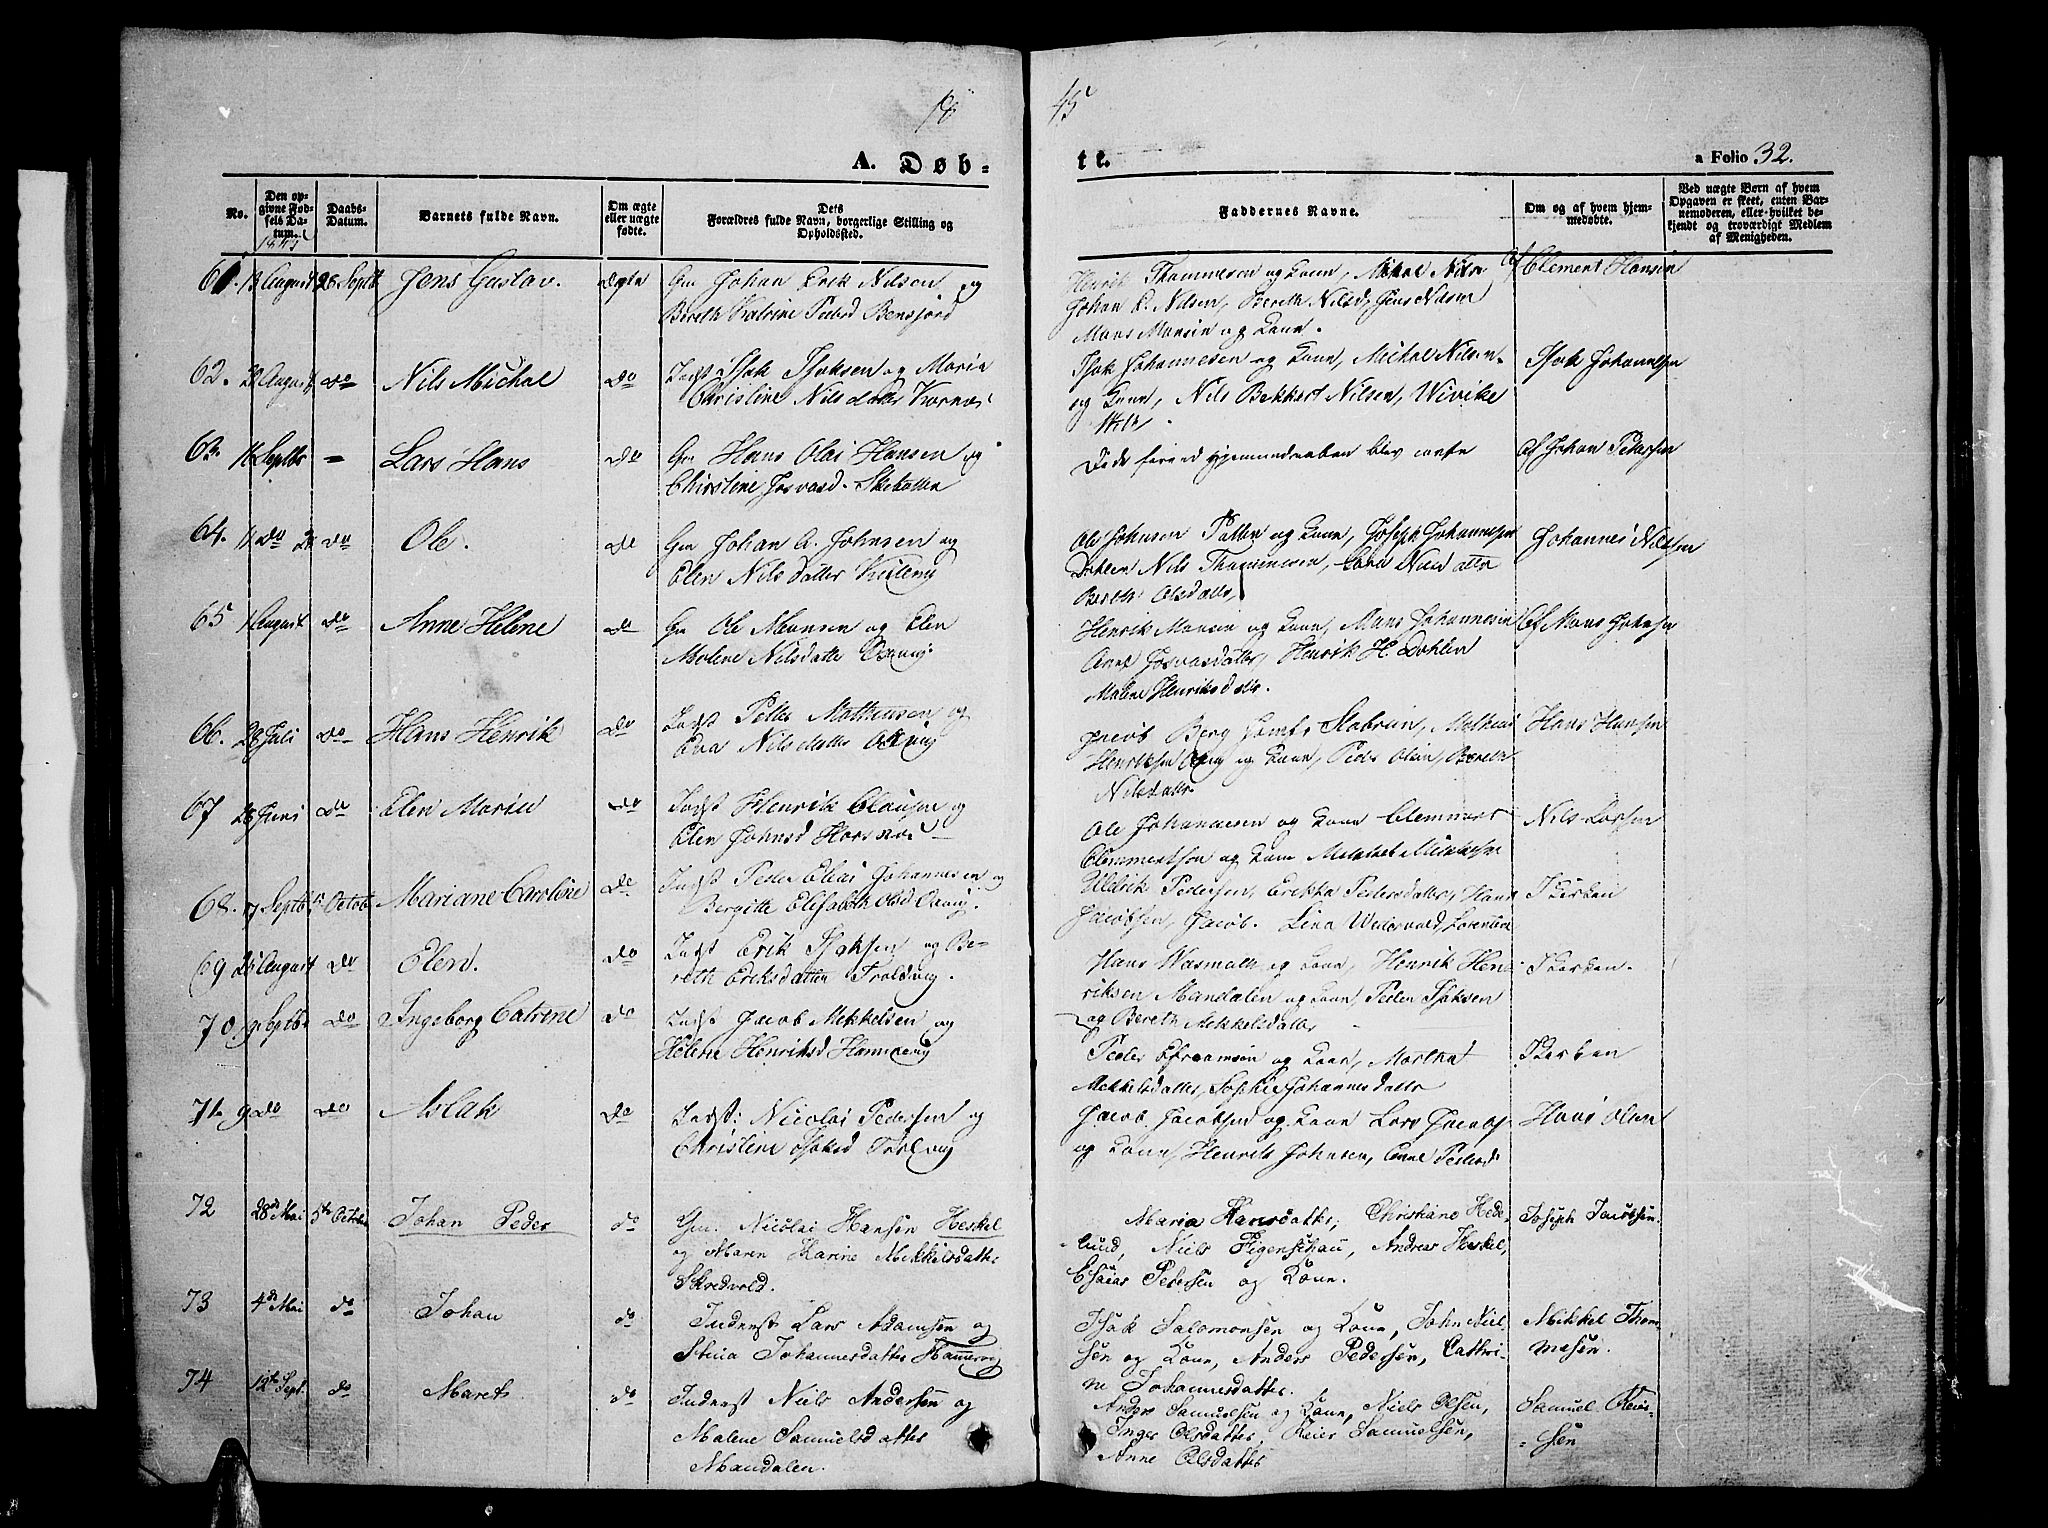 18
45
A. Døb-
te.
a Folio 32.
No.
Den op-
givne Fød-
sels Da-
tum.
1845
Daabs-
Datum.
Barnets fulde Navn.
Om ægte
eller uægte
fødte.
Dets
Forældres fulde Navn, borgerlige Stilling og
Opholdssted.
Faddernes Navne.
Om og af hvem hjem-
medøbte.
Ved uægte Børn af hvem
Opgaven er skeet, enten Bar-
nemoderen, eller hvilket be-
kjendt og troværdigt Medlem
af Menigheden.
61. 13 August 28 Septb Jens Gustav. Ægte Gm Johan Erik Nilsen og
Bereth Katrine Pedersd Bensjord
Henrik Thommesen og Kone, Mikal Nilsen
Johan E. Nilsen, Bereth Nilsd, Jens Nilsen
Mons Monsen og Kone.
Af Clement Hansen
62. 20 August do Nils Michal do Indst Isak Isaksen og Maria
Christine Nilsdatter Kornes
Isak Johannesen og Kone, Michal Nilsen
og Kone, Nils Bekkert Nilsen, Wivike
Isak Johannesen
63. 16 Septbr - Lars Hans do Gm Hans Olai Hansen og
Christine Josvasd. Skutellen
Døde forend Hjemmedaaben blev
Af Johan Pedersen
64. 11 do do Ole. do Gm Johan A. Johnsen og
Elen Nilsdatter
Ole Johnsen og Kone, Joseph Johannesen
Dahlen Nils Thommesen,
Bereth Olsdatter,
Johannes Nilsen
65 August do Anne Helene do Gm Ole Monsen og Elen
Malene Nilsdatter
Henrik Monsen og Kone, Mons Johannesen
Anne Josvasdatter, Henrik H. Dahlen
Malene Henriksdatter.
Af Mons Johnsen
66. 28 Juli do Hans Henrik do Indst Petter Mathiesen og
Eva Nilsdatter
Jacob Berg, Mathias
Henriksen og Kone, Peder Olsen, Bereth
Nilsdatter
Hans Hansen
67 28 Juni do Elen Marie do Indst Henrik Clausen og
Elen Johnsd
Ole Johannesen og Kone Clemmet
Clemmentsen og Kone Mekkel Mikkelsen
Nils Larsen
68. 17 Septb 5 Octob Mariane Caroline do Indst Peder Elias Johannesen og
Birgitte Elisabeth Olsd
Uldrik Pedersen, Erikka Pedersdatter, Hans
Jacobsen, Jacob. Lina Lorentzen
I Kirken
69 25 August do Elen. do Indst Erik Isaksen og Be-
reth Eriksdatter Troldvig.
Hans Wasmuth og Kone, Henrik Hen-
riksen Mandalen og Kone, Peder Isaksen
og Bereth Mekkelsdatter
I Kirken.
70. 9 Septb do Ingeborg Catrine do Indst Jacob Mekkelsen og
Helene Henriksd Hamnevig
Peder Efraimsen og Kone, Martha
Mekkelsdatter, Sophie Johannesdatter
I Kirken
71. 9 do do Aslak do Indst: Nicolai Pedersen og
Christine Isaksd Trolvig
Jacob Jacobsen og Kone Lars Jacobs
og Kone, Henrik Johnsen, Anne Pedersd
Hans Olsen
72 28de Mai 5te October Johan Peder do Gm. Nicolai Hansen Heskel
og Maren Karine Mikkelsdatter
Skredvold.
Maria Hansdatter, Christiane Hede-
lund, Niels Figenschau, Andreas Heskel,
Esaias Pedersen og Kone.
Joseph Jacobsen.
73 4de Mai do Johan do Inderst Lars Adamsen og
Stina Johannesdatter Hamervig
Isak Salomonsen og Kone, John Niel-
sen og Kone, Anders Pedersen, Cathri-
ne Johannesdatter.
Mikkel Thom-
mesen.
74 12te Sept. do Maret do Inderst Niels Andersen og
Malene Samuelsdatter
Mandalen.
Anders Samuelsen og Kone, Niels Olsen,
Inger Olsdatter, Reier Samuelsen,
Anne Olsdatter
Samuel Reier-
sen